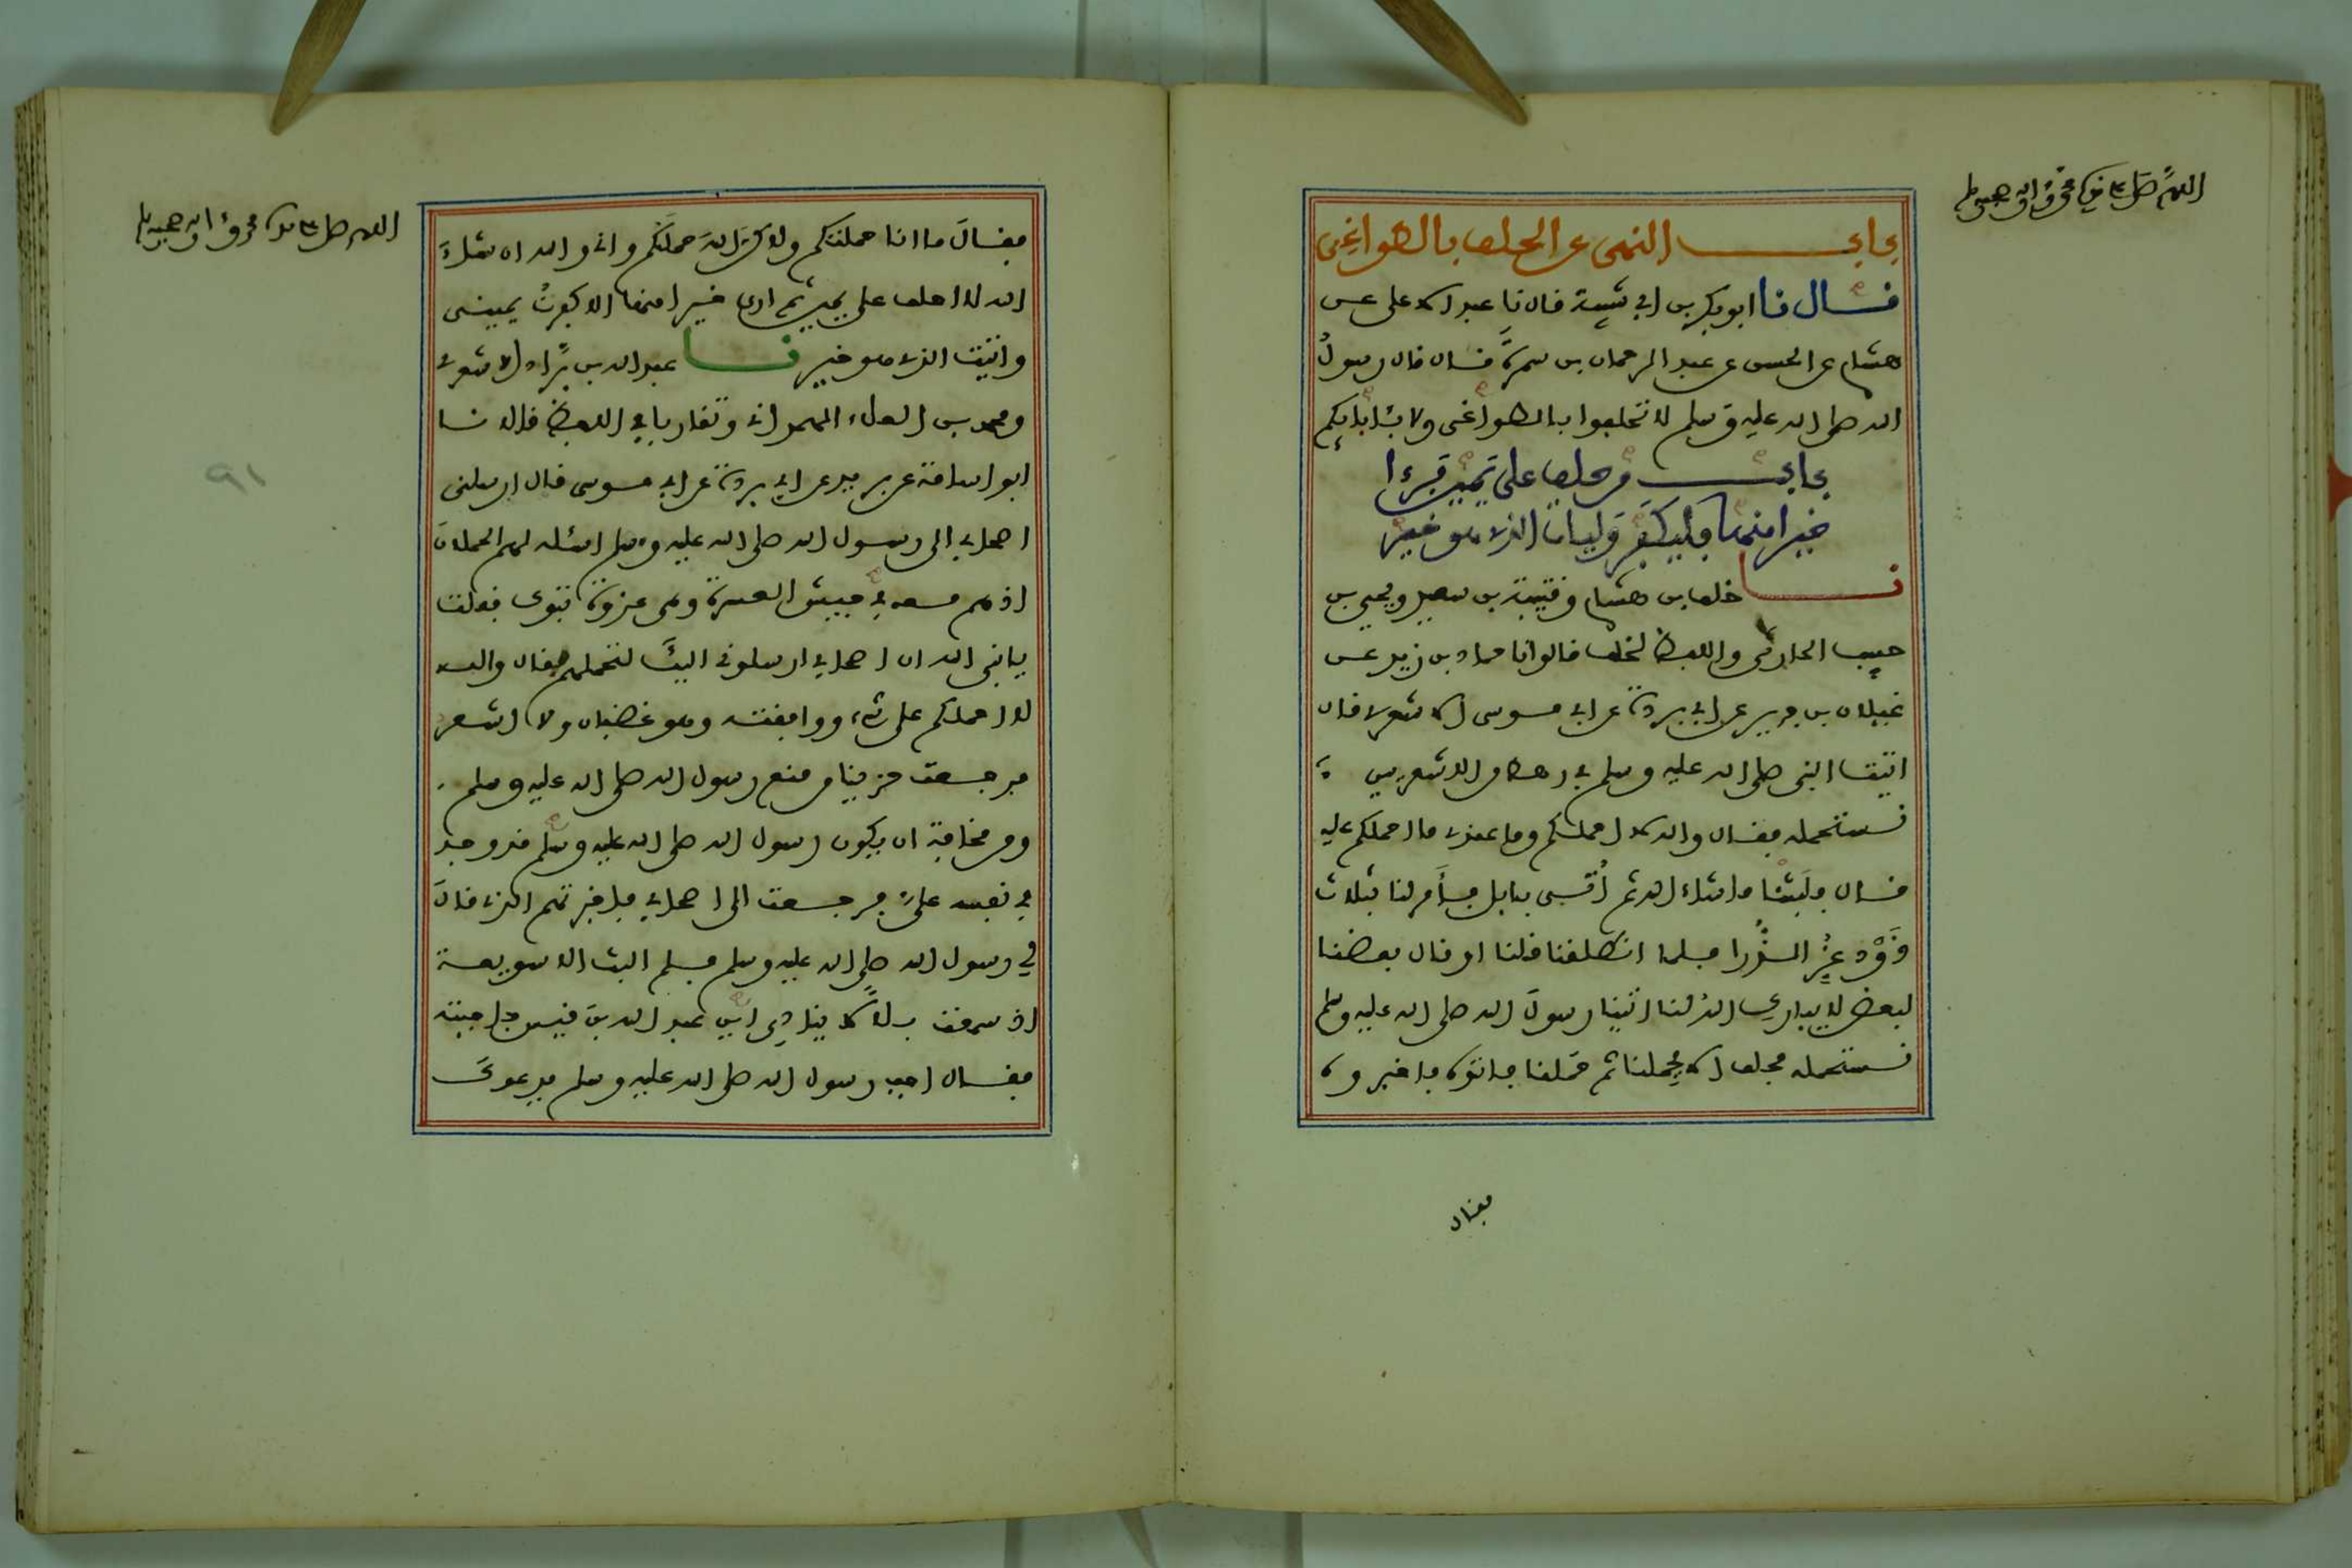 اللهم صل على سيدنا محمد وآله وصحبه وسلم
باب النهي عن الحلف بالطواغي
قال نا ابو بكر بن ابي شيبة قال نا عبد الاعلى عن
هشام عن الحسن عن عبد الرحمان بن سمرة قال قال رسول
الله صلى الله عليه وسلم لا تحلفوا بالطواغي ولا بئابايكم
باب من حلف على يمين فرءا
خيرا منها فليكفر وليات الذي هو خير
نا خلف بن هشام وقتيبة بن سعيد ويحيى بن
حبيب الحارثي واللفظ لخلف قالوا نا حماد بن زيد عن
غيلان بن جرير عن ابي بردة عن ابي موسى الاشعري قال
اتيت النبي صلى الله عليه وسلم في رهط من الاشعريين
نستحمله فقال والله لا احملكم وما عندي ما احملكم عليه
قال فلبثنا ما شاء الله ثم أتي بابل فأمر لنا بثلاث
ذود غر الذرا فلما انطلقنا قلنا او قال بعضنا
لبعض لا يبارك الله لنا اتينا رسول الله صلى الله عليه وسلم
نستحمله فحلف الا يحملنا ثم حملنا فاتوه فاخبروه
فقال
اللهم صل على سيدنا محمد وآله وصحبه وسلم
فقال ما انا حملتكم ولاكن الله حملكم واني والله ان شاء
الله لا احلف على يمين ثم ارى خيرا منها الا كفرت يميني
واتيت الذي هو خير نا عبد الله بن براد الاشعري
ومحمد بن العلاء الهمداني وتقاربا في اللفظ قالا نا
ابو اسامة عن بريد عن ابي بردة عن ابي موسى قال ارسلني
اصحابي الى رسول الله صلى الله عليه وسلم اسئله لهم الحملان
اذ هم معه في جيش العسرة وهي غزوة تبوك فقلت
يا نبي الله ان اصحابي ارسلوني اليك لتحملهم فقال والله
لا احملكم على شيء ووافقته وهو غضبان ولا اشعر
فرجعت حزينا من منع رسول الله صلى الله عليه وسلم
ومن مخافة ان يكون رسول الله صلى الله عليه وسلم قد وجد
في نفسه علي فرجعت الى اصحابي فاخبرتهم الذي قال
لي رسول الله صلى الله عليه وسلم فلم البث الا سويعة
اذ سمعت بلالا ينادي اين عبد الله بن قيس فاجبته
فقال اجب رسول الله صلى الله عليه وسلم يدعوك
٩١